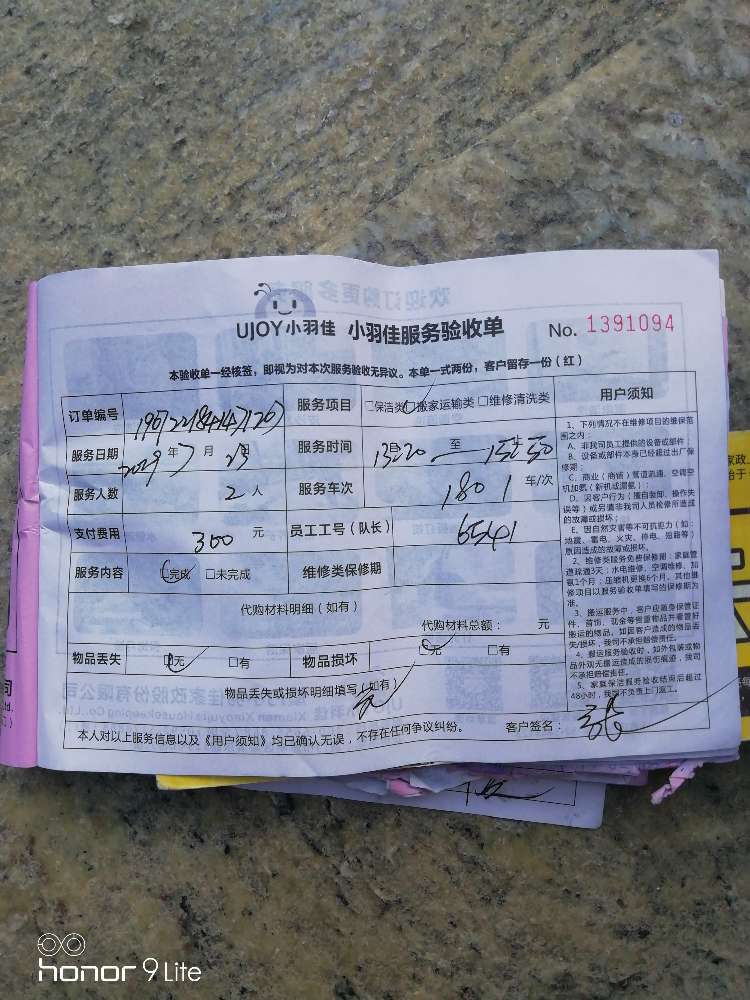 UJOY小羽佳 小羽佳服务验收单 No. 1391094
本验收单一经核签，即视为对本次服务验收无异议。本单一式两份，客户留存一份（红）
订单编号 服务项目 □保洁类 □搬家运输类 □维修清洗类 用户须知
服务日期 年 7 月 23 服务时间 13 20 至 15 50
服务人数 2 人 服务车次 1801 车/次
支付费用 300 元 员工工号（队长） 6541
服务内容 □完成 □未完成 维修类保修期
代购材料明细（如有）
代购材料总额： 元
物品丢失 □无 □有 物品损坏 □无 □有
物品丢失或损坏明细填写（如有）
无
本人对以上服务信息以及《用户须知》均已确认无误，不存在任何争议纠纷。 客户签名：
1、下列情况不在维修项目的维保范
围之内：
A、非我司员工提供的设备或部件；
B、设备或部件本身已经超过出厂保
修期；
C、商业（商铺）管道疏通、空调空
机加氨（新机或漏氨）；
D、因客户行为（擅自装卸、操作失
误等）或另请非我司人员检修所造成
的故障或损坏；
E、因自然灾害等不可抗力（如：
地震、雷电、火灾、停电、短路等）
原因造成的故障或损坏。
2、维修类服务免费保修期：家庭管
道疏通3天；水电维修、空调维修、加
氨1个月；压缩机更换6个月，其他维
修项目以服务验收单填写的保修期为
准。
3、搬运服务中，客户应随身保管证
件、首饰、现金等贵重物品并看管好
搬运的物品，如因客户造成的物品丢
失/损坏，我司不承担赔偿责任。
4、搬运服务验收时，如外包装或物
品外观无搬运造成的损伤痕迹，我司
不承担赔偿责任。
5、家庭保洁服务验收结束后超过
48小时，我司不负责上门返工。
honor 9 Lite